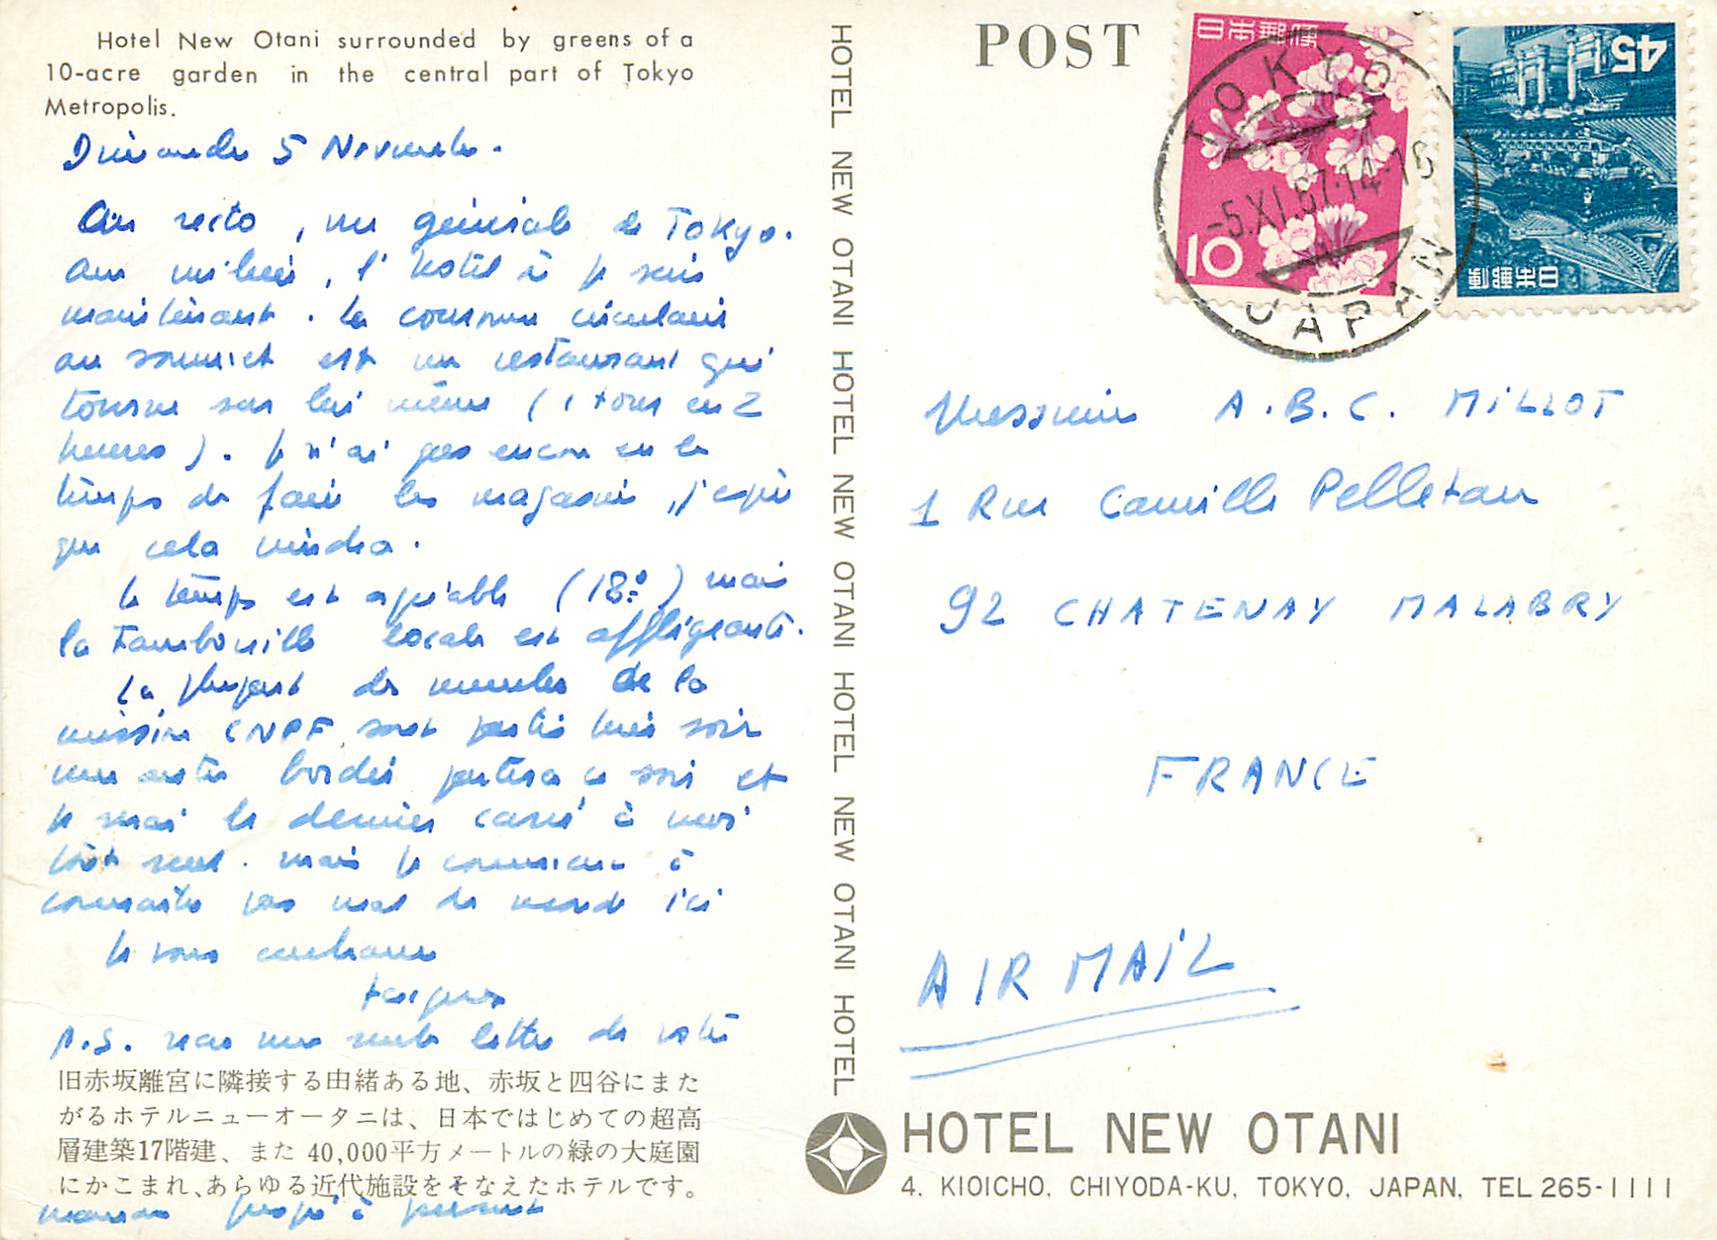 Hotel New Otani surrounded by greens of a
10-acre garden in the central part of Tokyo
Metropolis.
Dimanche 5 Novembre.
Au recto, vue générale de Tokyo.
Au milieu, l'hotel où je suis
maintenant. La couronne circulaire
au sommet est un restaurant qui
tourne sur lui même (1 tour en 2
heures). Je n'ai pas encore eu le
temps de faire les magasins, j'espère
que cela viendra.
Le temps est agréable (18°) mais
la tambouille locale est affligeante.
La plupart des membres de la
mission CNPF sont partis hier soir
une autre bordée partira ce soir et
je serai le dernier carré à moi
tout seul. Mais je commence à
connaître pas mal de monde ici
Je vous embrasse
Jacques
P.S. reçu une seule lettre de votre
maman jusqu'à présent
旧赤坂離宮に隣接する由緒ある地、赤坂と四谷にまた
がるホテルニューオータニは、日本ではじめての超高
層建築17階建、また 40,000平方メートルの緑の大庭園
にかこまれ、あらゆる近代施設をそなえたホテルです。
HOTEL NEW OTANI HOTEL NEW OTANI HOTEL NEW OTANI HOTEL
POST
日本郵便
10
45
日本郵便
TOKYO
-5.XI.67.14-16
JAPAN
Messieurs A.B.C. MILLOT
1 Rue Camille Pelletan
92 CHATENAY MALABRY
FRANCE
AIR MAIL
HOTEL NEW OTANI
4. KIOICHO. CHIYODA-KU. TOKYO. JAPAN. TEL 265-1111